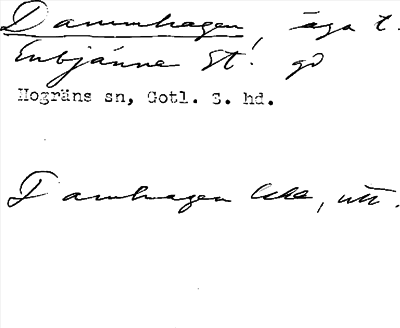 Dammhagen, äga t.
Enbjänne St. gd
Hogräns sn, Gotl. S. hd.
Damhagen Ekk, utt.